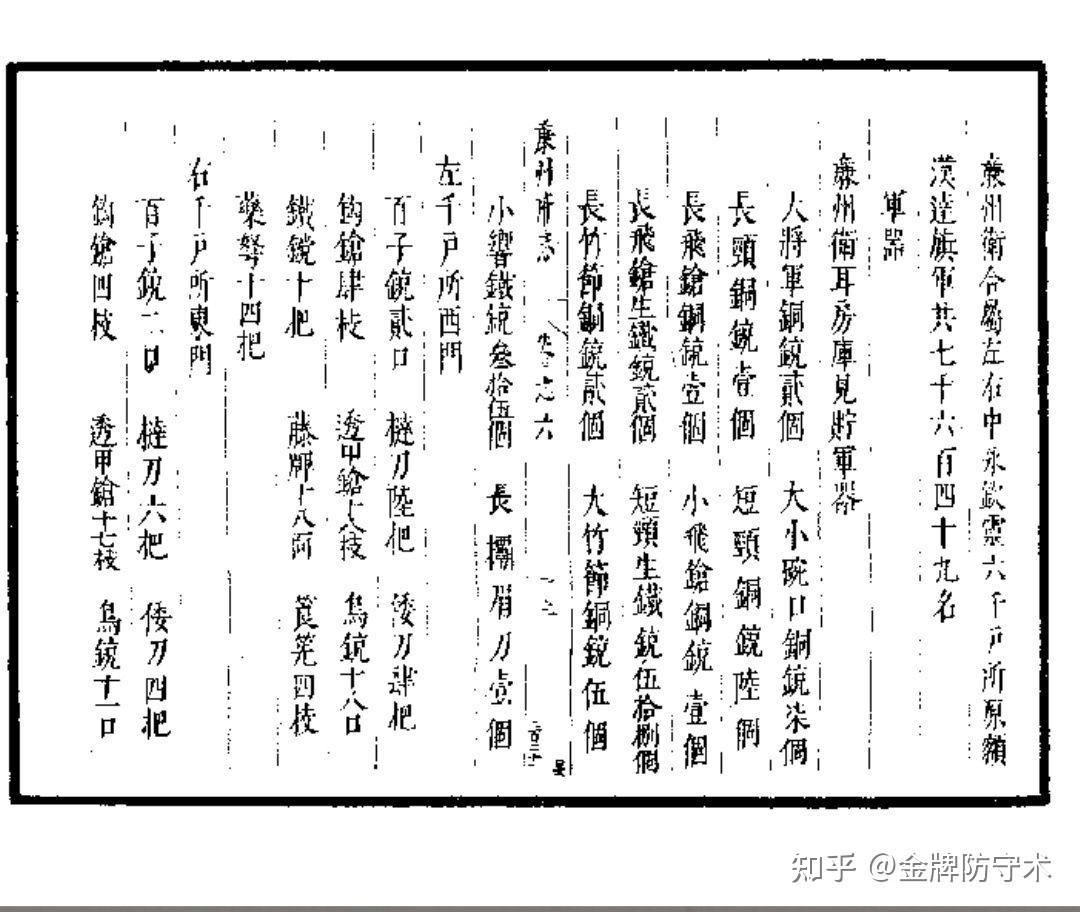 廉州衛合屬左右中永欽靈六千戶所原額
漢達旗軍共七千六百四十九名
軍器
廉州衛耳房庫見貯軍器
大將軍銅銃貳個 大小碗口銅銃柒個
長頸銅銃壹個 短頸銅銃陸個
長飛鎗銅銃壹個 小飛鎗銅銃壹個
長飛鎗生鐵銃貳個 短頸生鐵銃伍拾捌個
長竹節銅銃貳個 大竹節銅銃伍個
廉州府志 卷之六
小響鐵銃叁拾伍個 長欛眉刀壹個
左千戶所西門
百子銃貳口 撻刀陸把 倭刀肆把
鈎鎗肆枝 透甲鎗十八枝 鳥銃十八口
鐵銃十把 藤牌十八面 筤筅四枝
藥弩十四把
右千戶所東門
百子銃二口 撻刀六把 倭刀四把
鈎鎗四枝 透甲鎗十七枝 鳥銃十一口
知乎 @金牌防守术